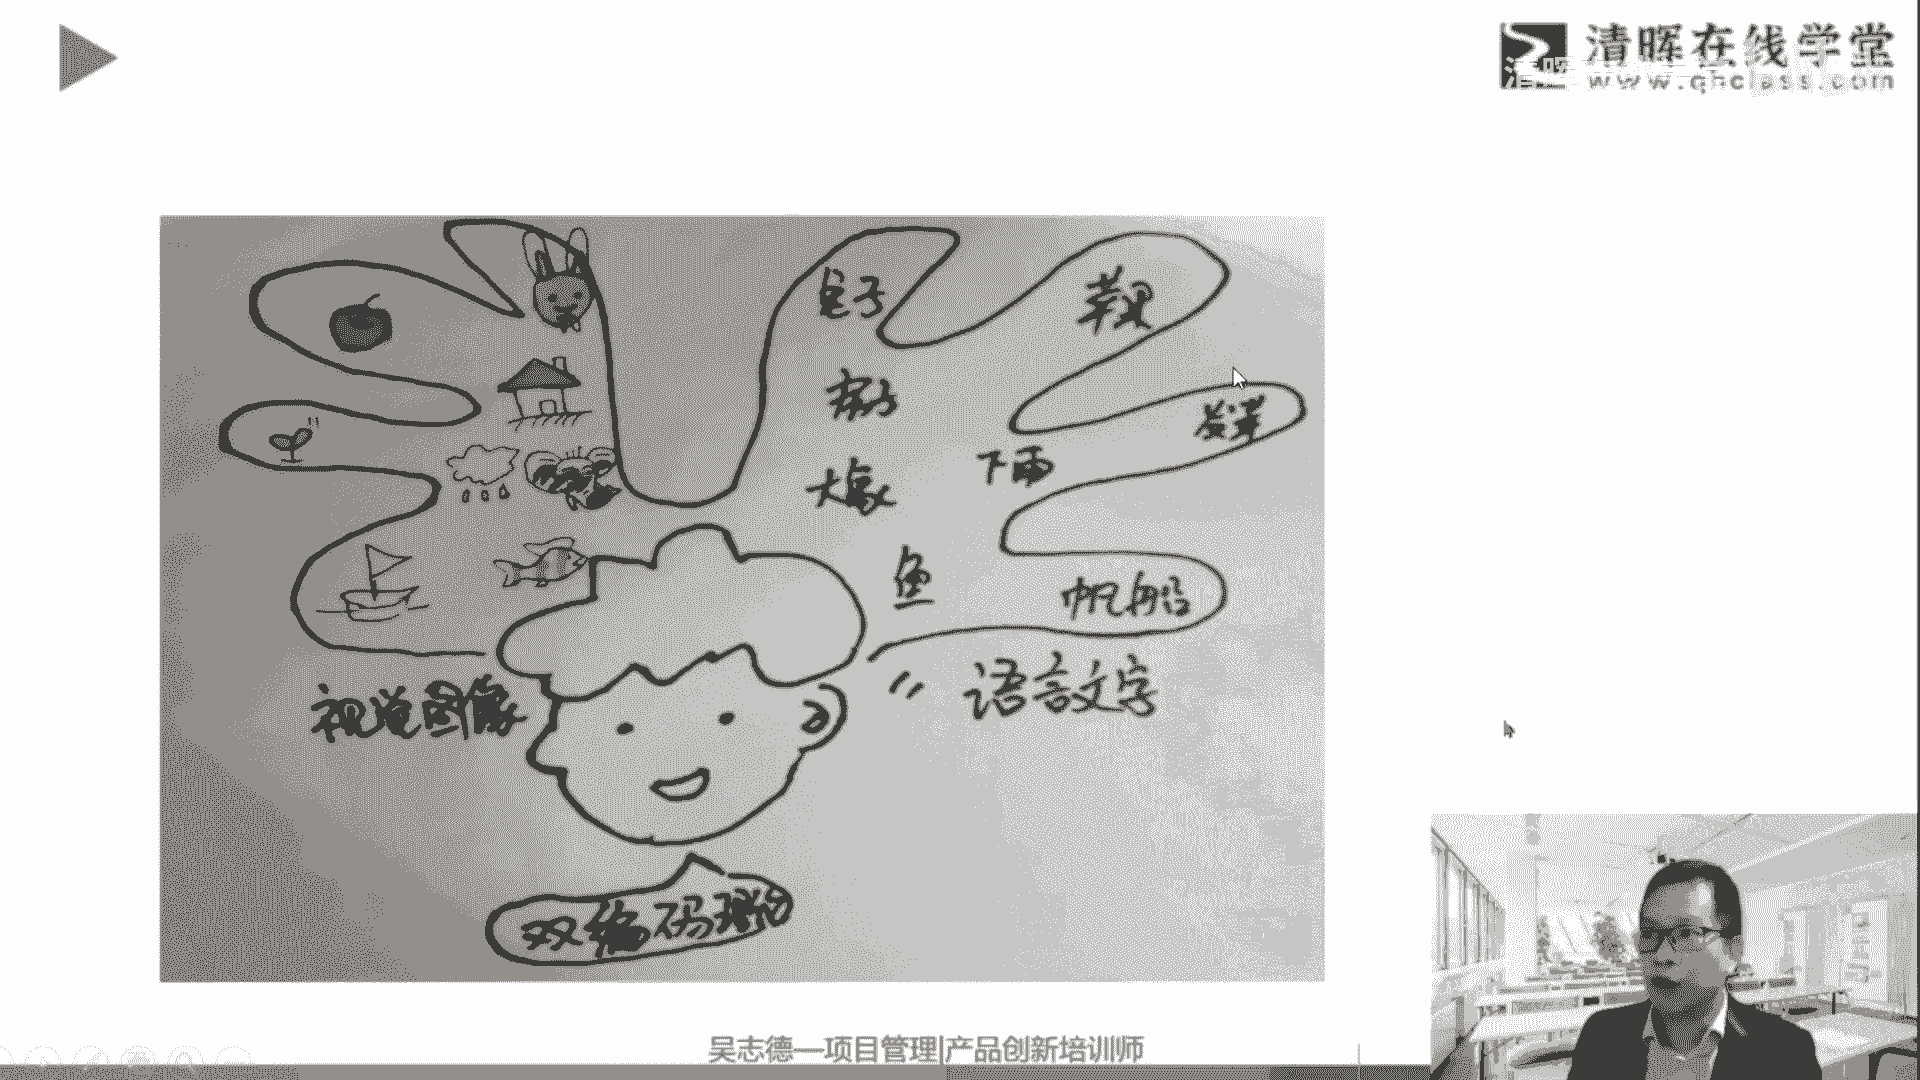 清晖在线学堂
www.qhclass.com
兔子
苹果
房子
发芽
大象
下雨
鱼
帆船
视觉图像
语言文字
双编码理论
吴志德—项目管理|产品创新培训师